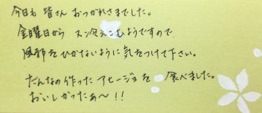 今日も皆さんおつかれさまでした。
金曜日から又冷えこむようですので
風邪をひかないように気をつけて下さい。
だんなの作ったアヒージョを食べました。
おいしかったぁ〜!!